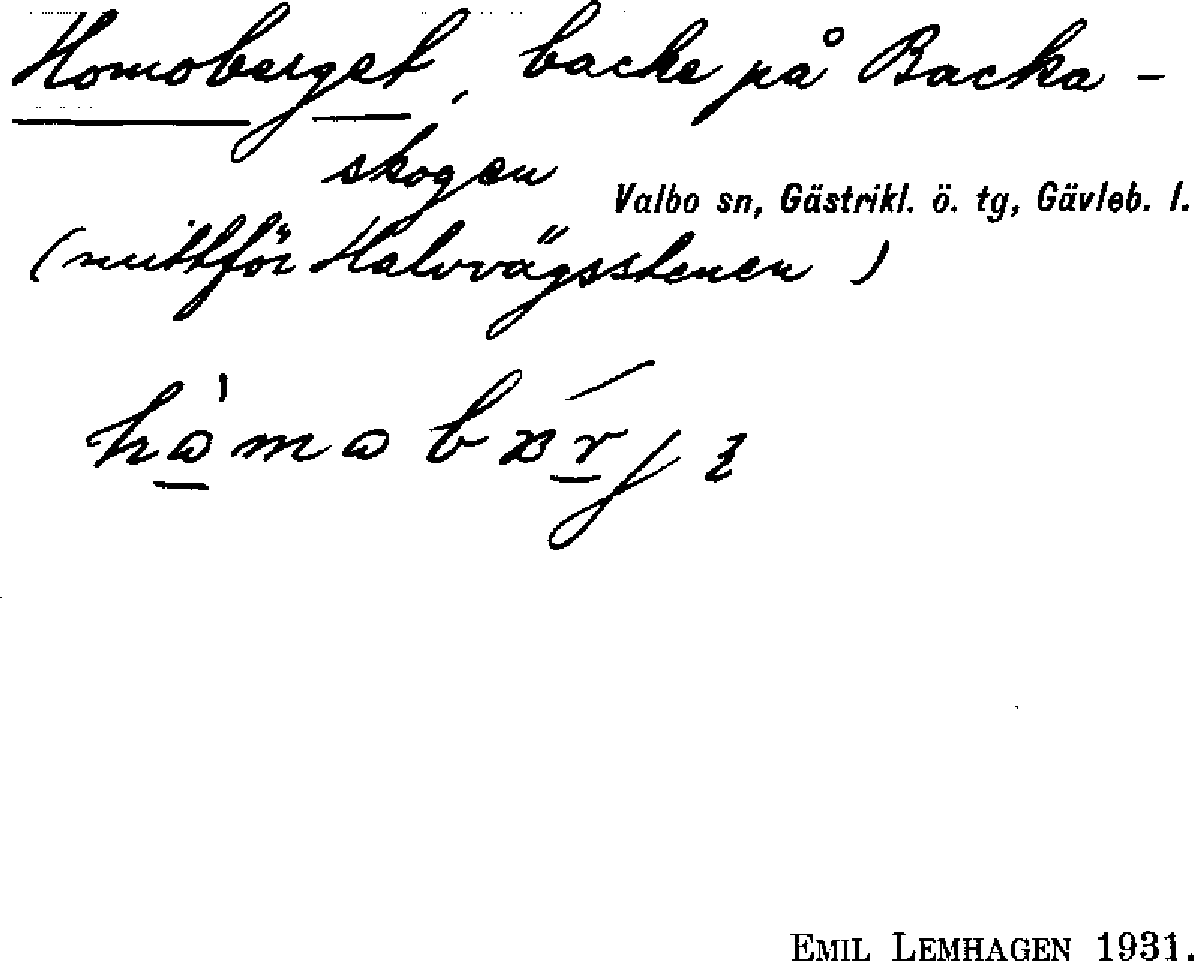 Homoberget, backe på Backa-
skogen
Valbo sn, Gästrikl. ö. tg, Gävleb. l.
(mittför Halvvägsstenen)
EMIL LEMHAGEN 1931.